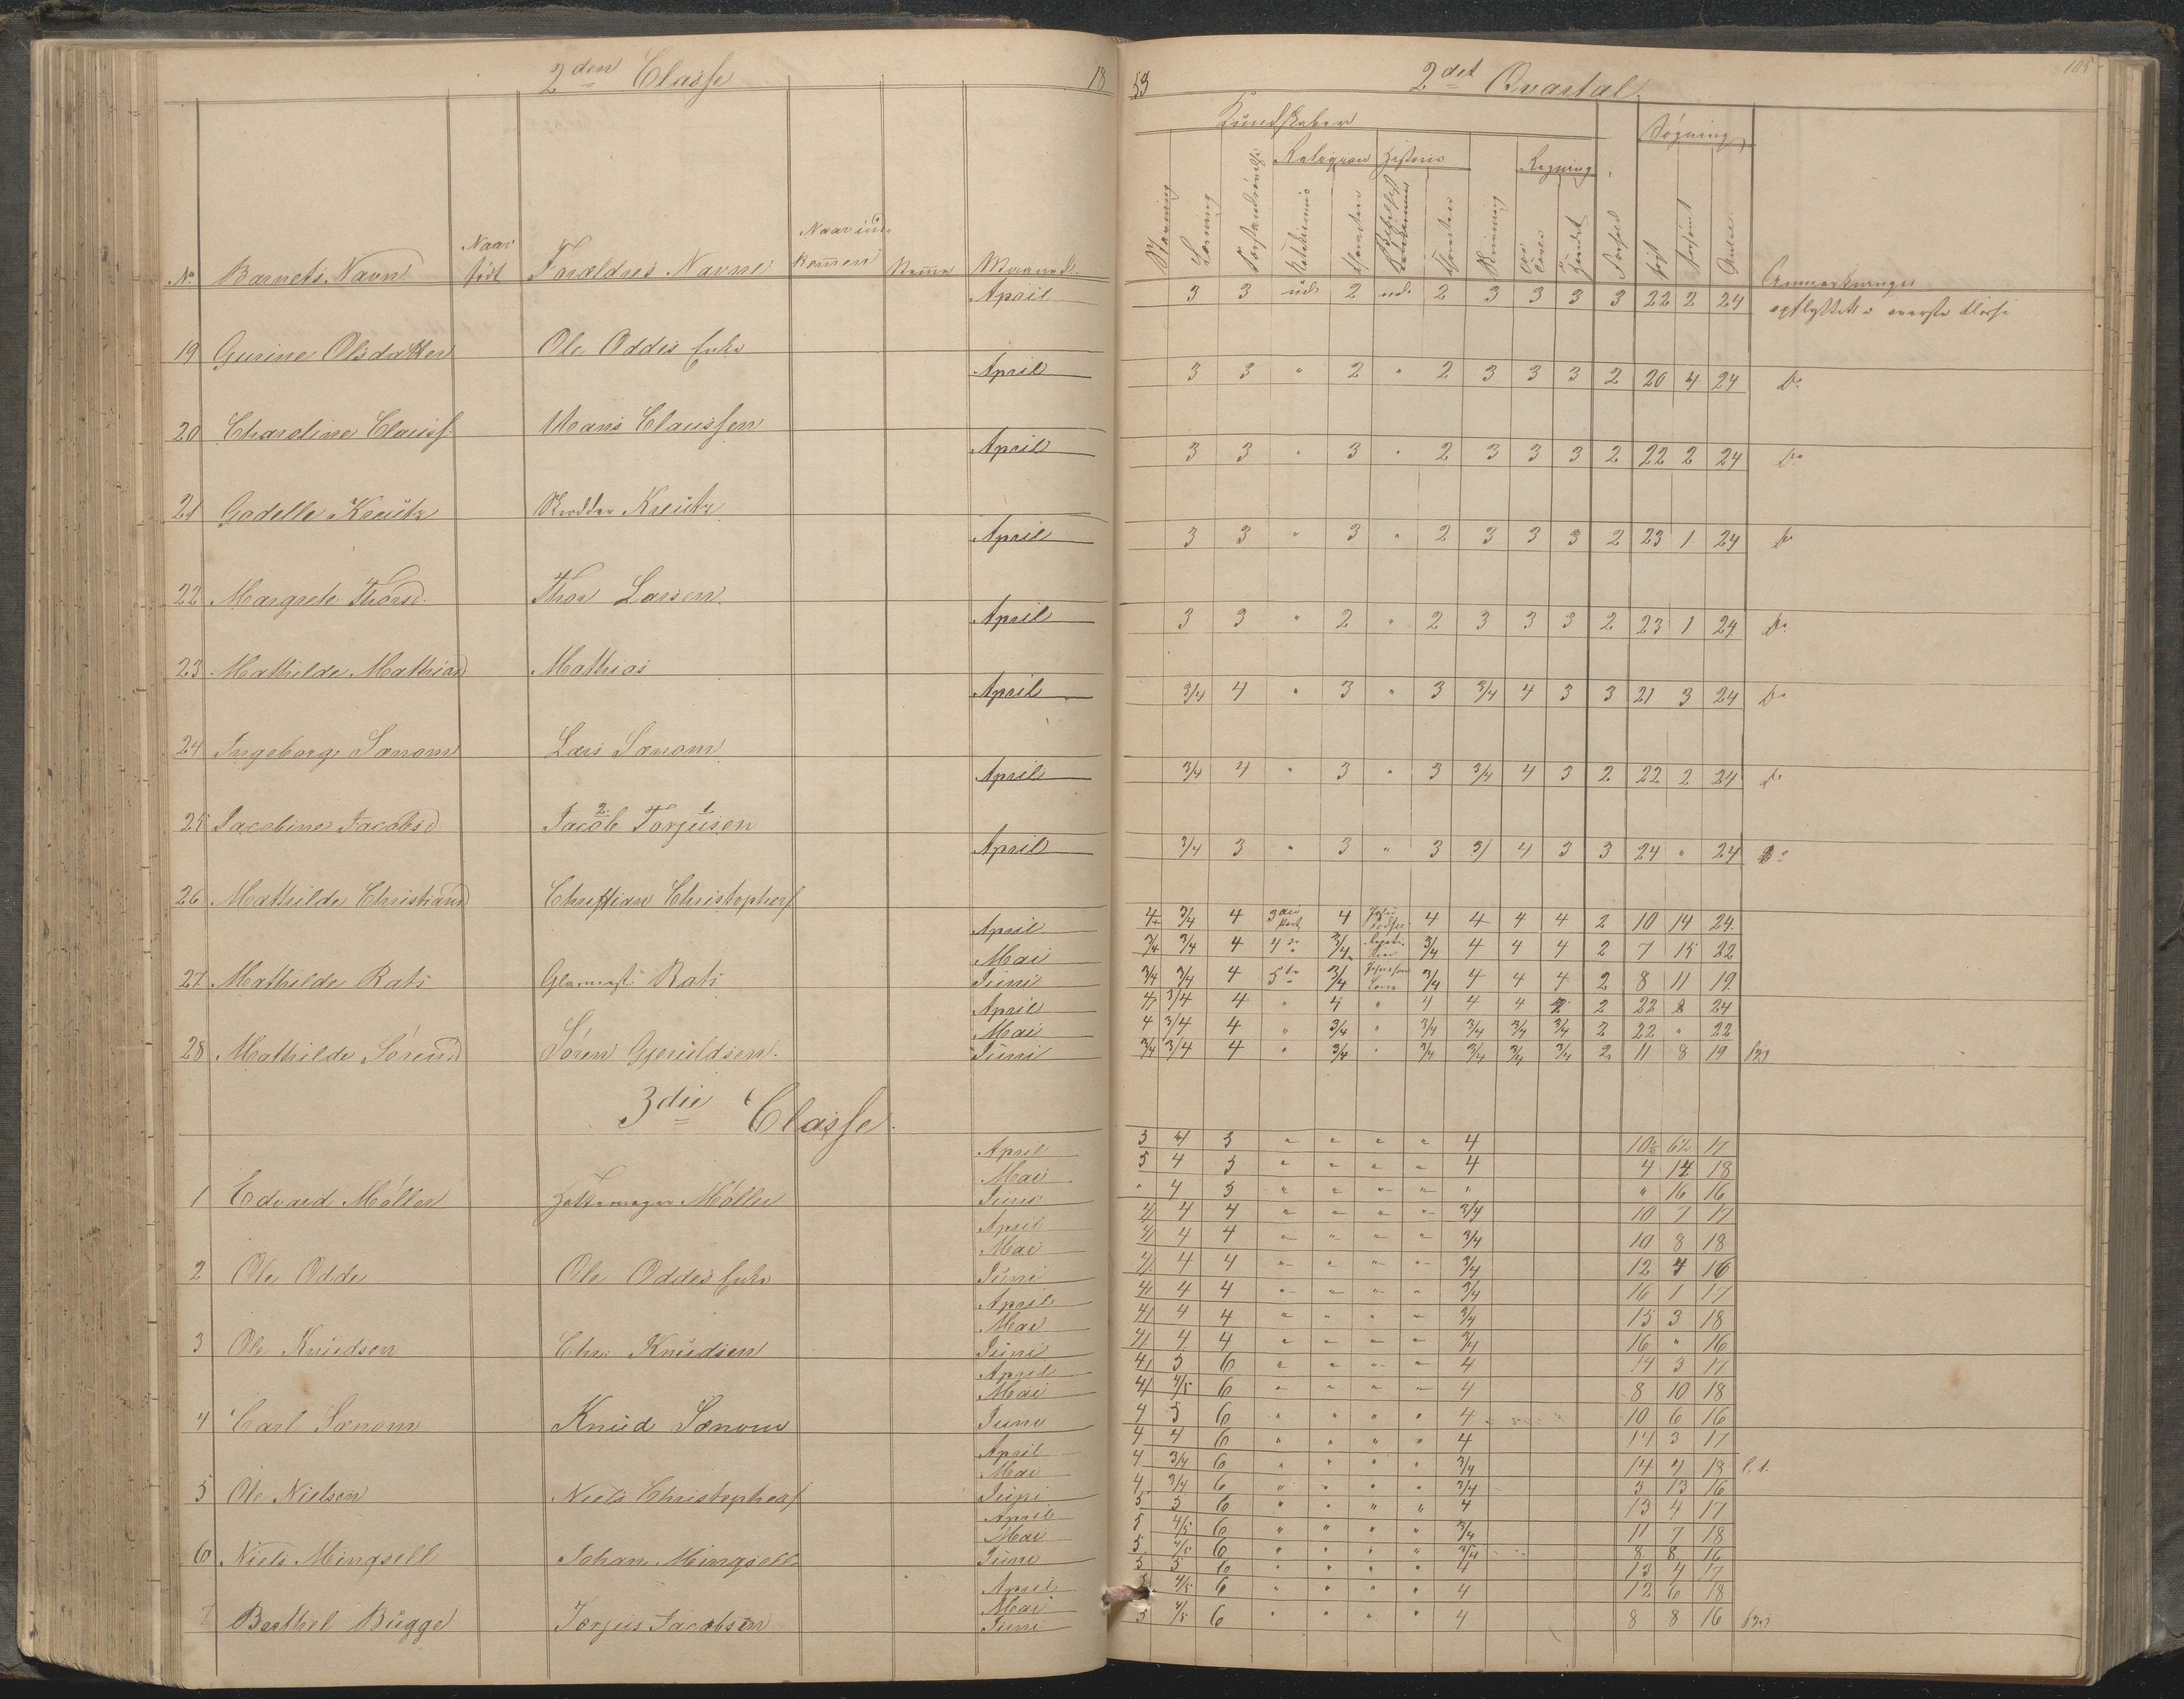 2den Classe 18
53 2det Qvartal. 105
Kundskaber Søgning
Religion Historie Regning
No Barnets Navn Naar født Forældres Navne Naar ind kommen Maaned. Læsning Forstandsøvelse Skrivning Forhold Anmærkninger
April 3 3 ude 2 ude 2 3 3 3 3 22 2 24 opflyttet i øverste Classe
19 Gurine Olsdatter Ole Oddis Enke
April 3 3 " 2 " 2 3 3 3 2 20 4 24 Do
20 Charoline Clausf. Hans Claussen
April 3 3 " 3 " 2 3 3 3 2 22 2 24 Do
21 Godelle Kreütz Kreütz
April 3 3 " 3 " 2 3 3 3 2 23 1 24 Do
22 Margrete Thorsd. Thor Larsen
April 3 3 " 2 " 2 3 3 3 2 23 1 24 Do
23 Mathilde Mathiasd Mathias
April 3/4 4 " 3 " 3 3/4 4 3 3 21 3 24 Do
24 Ingeborg Sanom Lars Sanom
April 3/4 4 " 3 " 3 3/4 4 3 2 22 2 24 Do
25 Jacobine Jacobsd. Jacob 2. Torjusen 1.
April 3/4 3 " 3 " 3 3/ 4 3 3 24 " 24 Do
26 Mathilde Christiansd Christian Christophers
April 4 3/4 4 3die Part 4 4 4 4 4 2 10 14 24.
Mai 3/4 3/4 4 4de 3/4 3/4 4 4 4 2 7 15 22
27 Mathilde Rats Rats Juni 3/4 3/4 4 5te 3/4 3/4 4 4 4 2 8 11 19
April 4 3/4 4 " 4 " 4 4 4 2 2 22 2 24
Mai 4 3/4 4 " 3/4 " 3/4 3/4 3/4 3/4 2 22 " 22
28 Mathilde Sørensd Søren Gjeruldsen. Juni 3/4 3/4 4 " 3/4 " 3/4 3/4 3/4 3/4 2 11 8 19
3die Classe.
April 5 4 5 " " " " 4 10½ 6½ 17
Mai 5 4 5 " " " " 4 4 14 18
1 Edvard Møller Møller Juni " 4 5 " " " " " " 16 16
April 4 4 4 " " " " 3/4 10 7 17
Mai 4 4 4 " " " " 3/4 10 8 18
2 Ole Odde Ole Oddes Enke Juni 4 4 4 " " " " 3/4 12 4 16
April 4 4 4 " " " " 3/4 16 1 17
Mai 4 4 4 " " " " 3/4 15 3 18
3 Ole Knudsen Chr. Knüdsen Juni 4 4 4 " " " " 3/4 16 " 16
April 4 5 6 " " " " 4 14 3 17
Mai 4 4/5 6 " " " " 4 8 10 18
4 Carl Sanom Knud Sanom Juni 4 5 6 " " " " 4 10 6 16
April 4 4 6 " " " " 4 14 3 17
Mai 4 3/4 6 " " " " 3/4 14 4 18
5 Ole Nielsen Niels Christophers Juni 4 3/4 6 " " " " 3/4 3 13 16
April 5 5 6 " " " " 4 13 4 17
Mai 5 4/5 6 " " " " 3/4 11 7 18
6 Niels Mingsell Johan Mingsell Juni 5 4/5 6 " " " " 3/4 8 8 16
April 5 5 6 " " " " 4 13 4 17
Mai 4/5 6 " " " " 4 12 6 18
7 Berthel Bügge Torjus Jacobsen Juni 5 4/5 6 " " " " 4 8 8 16